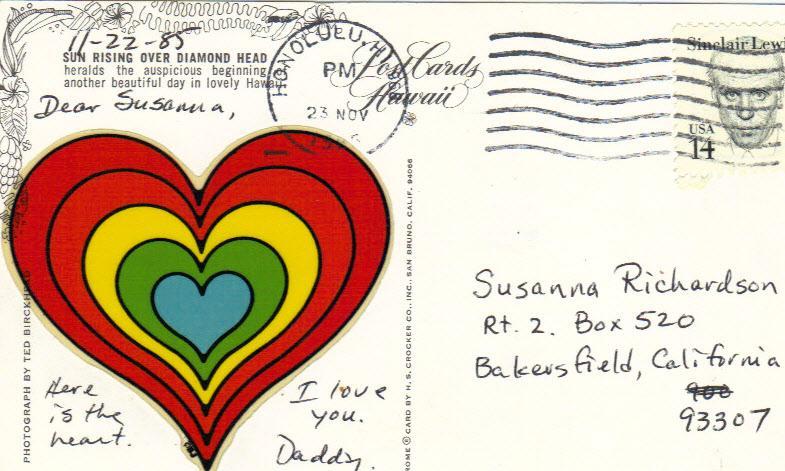 11-22-85
SUN RISING OVER DIAMOND HEAD
heralds the auspicious beginning
another beautiful day in lovely Hawaii.
Dear Susanna,
Here
is the
heart.
I love
you.
Daddy.
PHOTOGRAPH BY TED BIRCKHEAD
HONOLULU, HI
PM
23 NOV
Post Cards
Hawaii
Sinclair Lewi
USA
14
CARD BY H. S. CROCKER CO., INC., SAN BRUNO, CALIF. 94066
Susanna Richardson
Rt. 2. Box 520
Bakersfield, California
900
93307